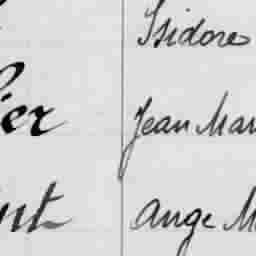 Isidore
ier Jean Mar
nt Ange M